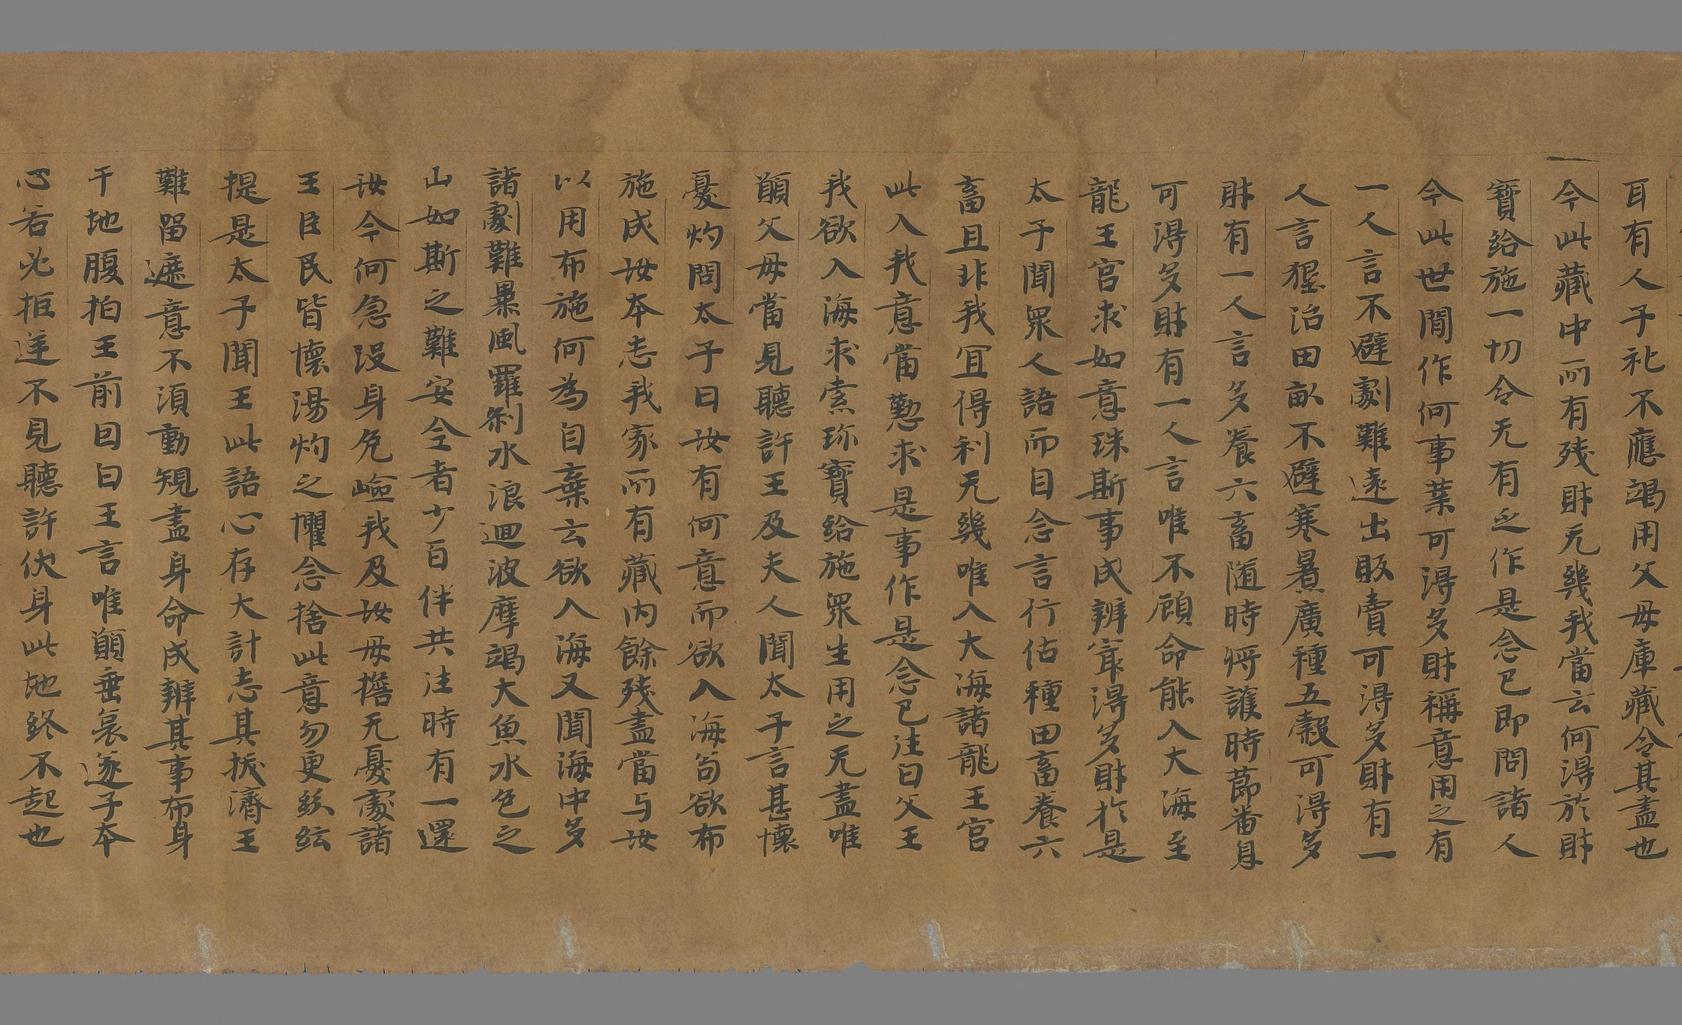 耳有人子礼不應竭用父母庫藏令其盡也
今此藏中所有残財无幾我當云何得於財
寶給施一切令无有乏作是念已即問諸人
今此世間作何事業可得多財稱意用之有
一人言不避劇難遠出販賣可得多財有一
人言墾治田畝不避寒暑廣種五穀可得多
財有一人言多養六畜随時將護時節蕃息
可得多財有一人言唯不顧命能入大海至
龍王宮求如意珠斯事成辦寔得多財於是
太子聞眾人語而自念言行估種田畜養六
畜且非我宜得利无幾唯入大海諸龍王宮
此入我意當懃求是事作是念已往白父王
我欲入海求索珎寶給施眾生用之无盡唯
願父母當見聽許王及夫人聞太子言甚懷
憂灼問太子曰汝有何意而欲入海苟欲布
施成汝本志我家所有藏内餘残盡當与汝
以用布施何為自棄云欲入海又聞海中多
諸劇難暴風羅刹水浪迴波摩竭大魚水色之
山如斯之難安全者少百伴共往時有一還
汝今何急没身危嶮我及汝母擔无憂處諸
王臣民皆懷湯灼之懼念捨此意勿更紜紜
提是太子聞王此語心存大計志其拔濟王
難留遮意不須動規盡身命成辦其事布身
于地腹拍王前曰白王言唯願垂哀遂子本
心若必拒逆不見聽許伏身此地終不起也